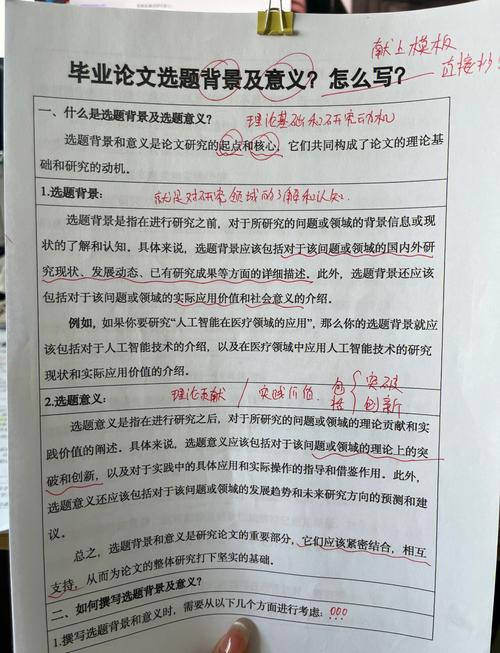 献上模板
直接抄
毕业论文选题背景及意义？怎么写？
一、什么是选题背景及选题意义？
理论基础和研究动机
选题背景和意义是论文研究的起点和核心，它们共同构成了论文的理论基
础和研究的动机。
1.选题背景：
就是对研究领域的了解和认知
选题背景是指在进行研究之前，对于所研究的问题或领域的背景信息或现
状的了解和认知。具体来说，选题背景应该包括对于该问题或领域的国内外研
究现状、发展动态、已有研究成果等方面的详细描述。此外，选题背景还应该
包括对于该问题或领域的实际应用价值和社会意义的介绍。
例如，如果你要研究“人工智能在医疗领域的应用”，那么你的选题背景就应
该包括对于人工智能技术的介绍，以及在医疗领域中应用人工智能技术的研究
现状和实际应用价值的介绍。
2.选题意义：
理论贡献 / 实践价值 包括 { 突破
创新
选题意义是指在进行研究之后，对于所研究的问题或领域的理论贡献和实
践价值的阐述。具体来说，选题意义应该包括对于该问题或领域的理论上的突
破和创新，以及对于实践中的具体应用和实际操作的指导和借鉴作用。此外，
选题意义还应该包括对于该问题或领域的发展趋势和未来研究方向的预测和建
议。
总之，选题背景和意义是研究论文的重要部分，它们应该紧密结合，相互
支持，从而为论文的整体研究打下坚实的基础。
二、如何撰写选题背景及意义？
1.撰写选题背景和意义时，需要从以下几个方面进行考虑：